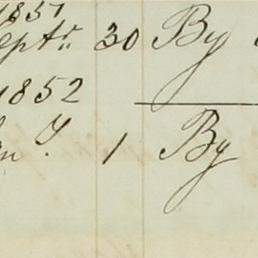 1851
Septr. 30 By
1852
1 By